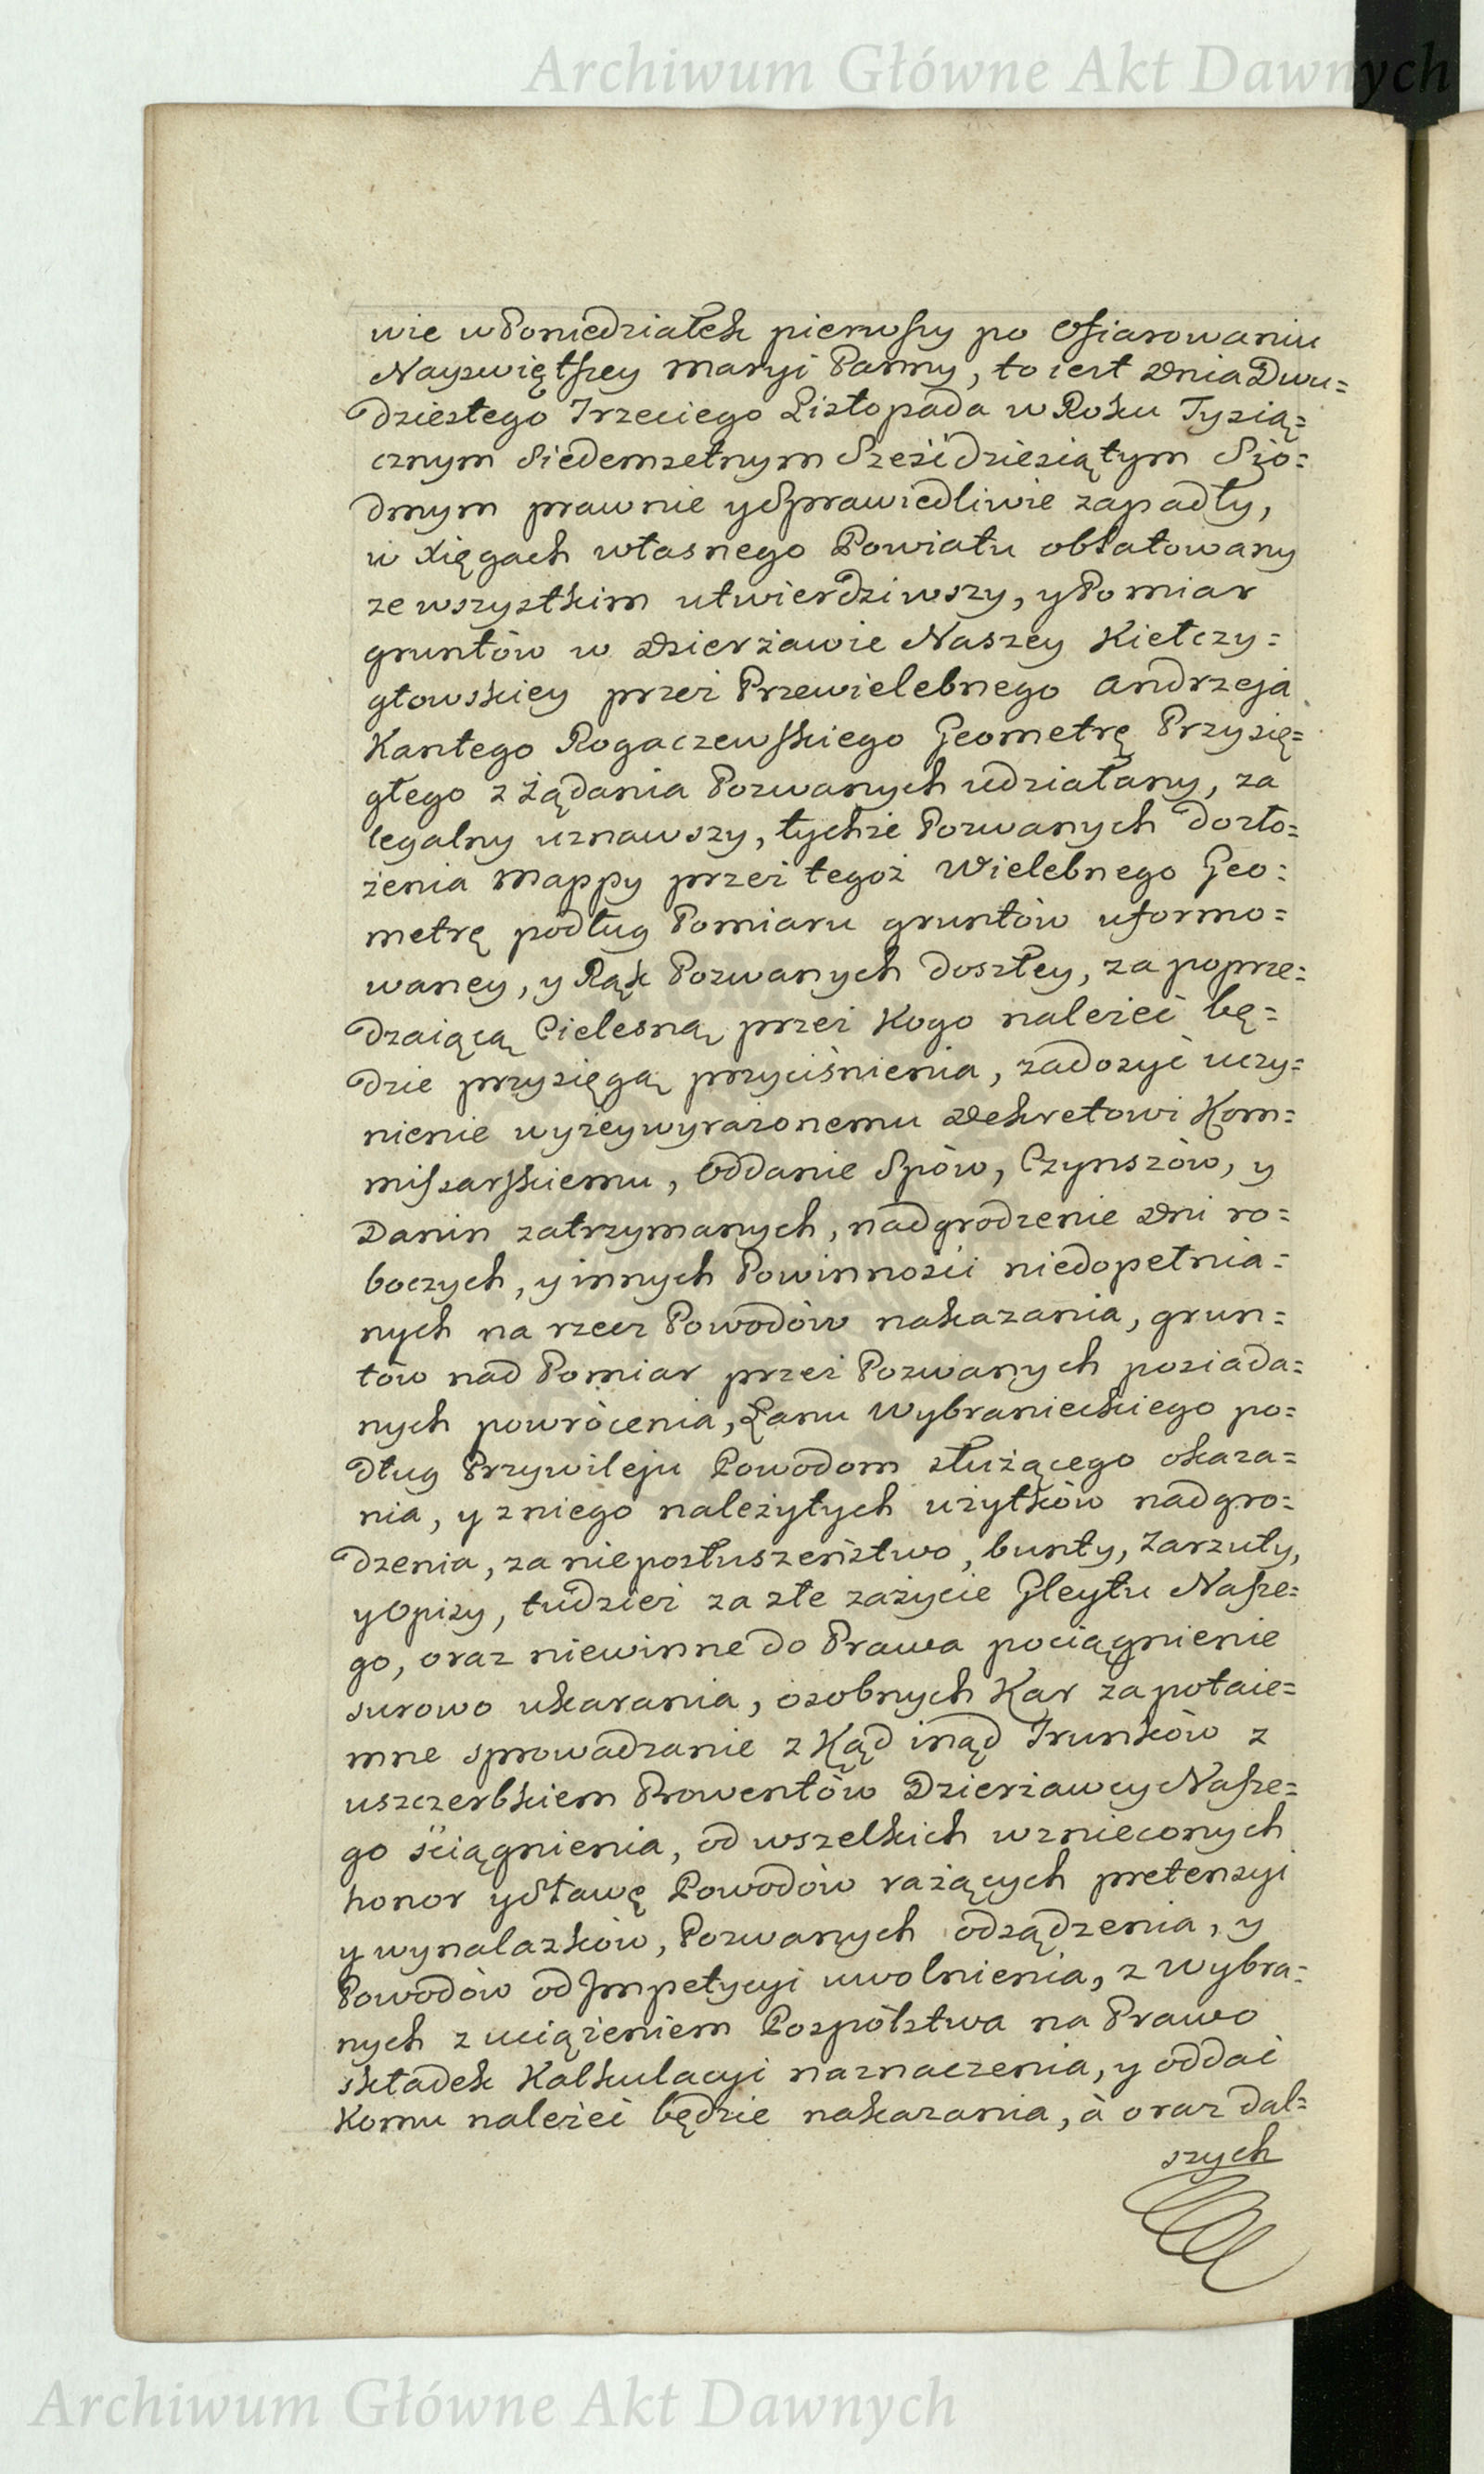 Archiwum Główne Akt Dawnych
wie w Poniedziałek pierwszy po Ofiarowaniu
Nayswiętszey Maryi Panny, to iest Dnia Dwu=
dziestego Trzeciego Listopada w Roku Tysią=
cznym Siedemsetnym Sześćdziesiątym Sió=
dmym prawnie y Sprawiedliwie zapadły,
w Xięgach własnego Powiatu oblatowany
ze wszystkim utwierdziwszy, y Pomiar
gruntów w Dzierżawie Naszey Kiełczy=
głowskiey przez Przewielebnego Andrzeja
Kantego Rogaczewskiego Geometrę Przysię=
głego z Żądania Pozwanych udziałany, za
legalny uznawszy, tychże Pozwanych do zło=
żenia Mappy przez tegoż Wielebnego Geo=
metrę podług Pomiaru gruntów uformo=
waney, y Rąk Pozwanych doszłey, za poprze=
dzaiącą Cielesną przez Kogo należeć bę=
dzie przysięgą przyciśnienia, zadosyć uczy=
nienie wyżeywyrażonemu Dekretowi Kom=
missarskiemu, Oddanie Spów, Czynszów, y
Danin zatrzymanych, nadgrodzenie Dni ro=
boczych, y innych Powinności niedopełnia=
nych na rzecz Powodów nakazania, grun=
tów nad Pomiar przez Pozwanych posiada=
nych powrócenia, Łanu Wybranieckiego po=
dług Przywileju Powodom służącego okaza=
nia, y z niego należytych użytków nadgro=
dzenia, za nieposłuszeństwo, bunty, Zarzuty,
y Opisy, tudzież za złe zażycie Gleytu Nasze=
go, oraz niewinne do Prawa pociągnienie
surowo ukarania, osobnych Kar za potaie=
mne sprowadzanie z Kąd inąd Trunków z
uszczerbkiem Prowentów Dzierżawcy Nasze=
go ściągnienia, od wszelkich wznieconych
honor y Sławę Powodów rażących pretensyi
y wynalazków, Pozwanych odsądzenia, y
Powodów od Jmpetycyi uwolnienia, z wybra=
nych z uciążeniem Pospólstwa na Prawo
składek Kalkulacyi naznaczenia, y oddać
Komu należeć będzie nakazania, à oraz dal=
szych
Archiwum Główne Akt Dawnych